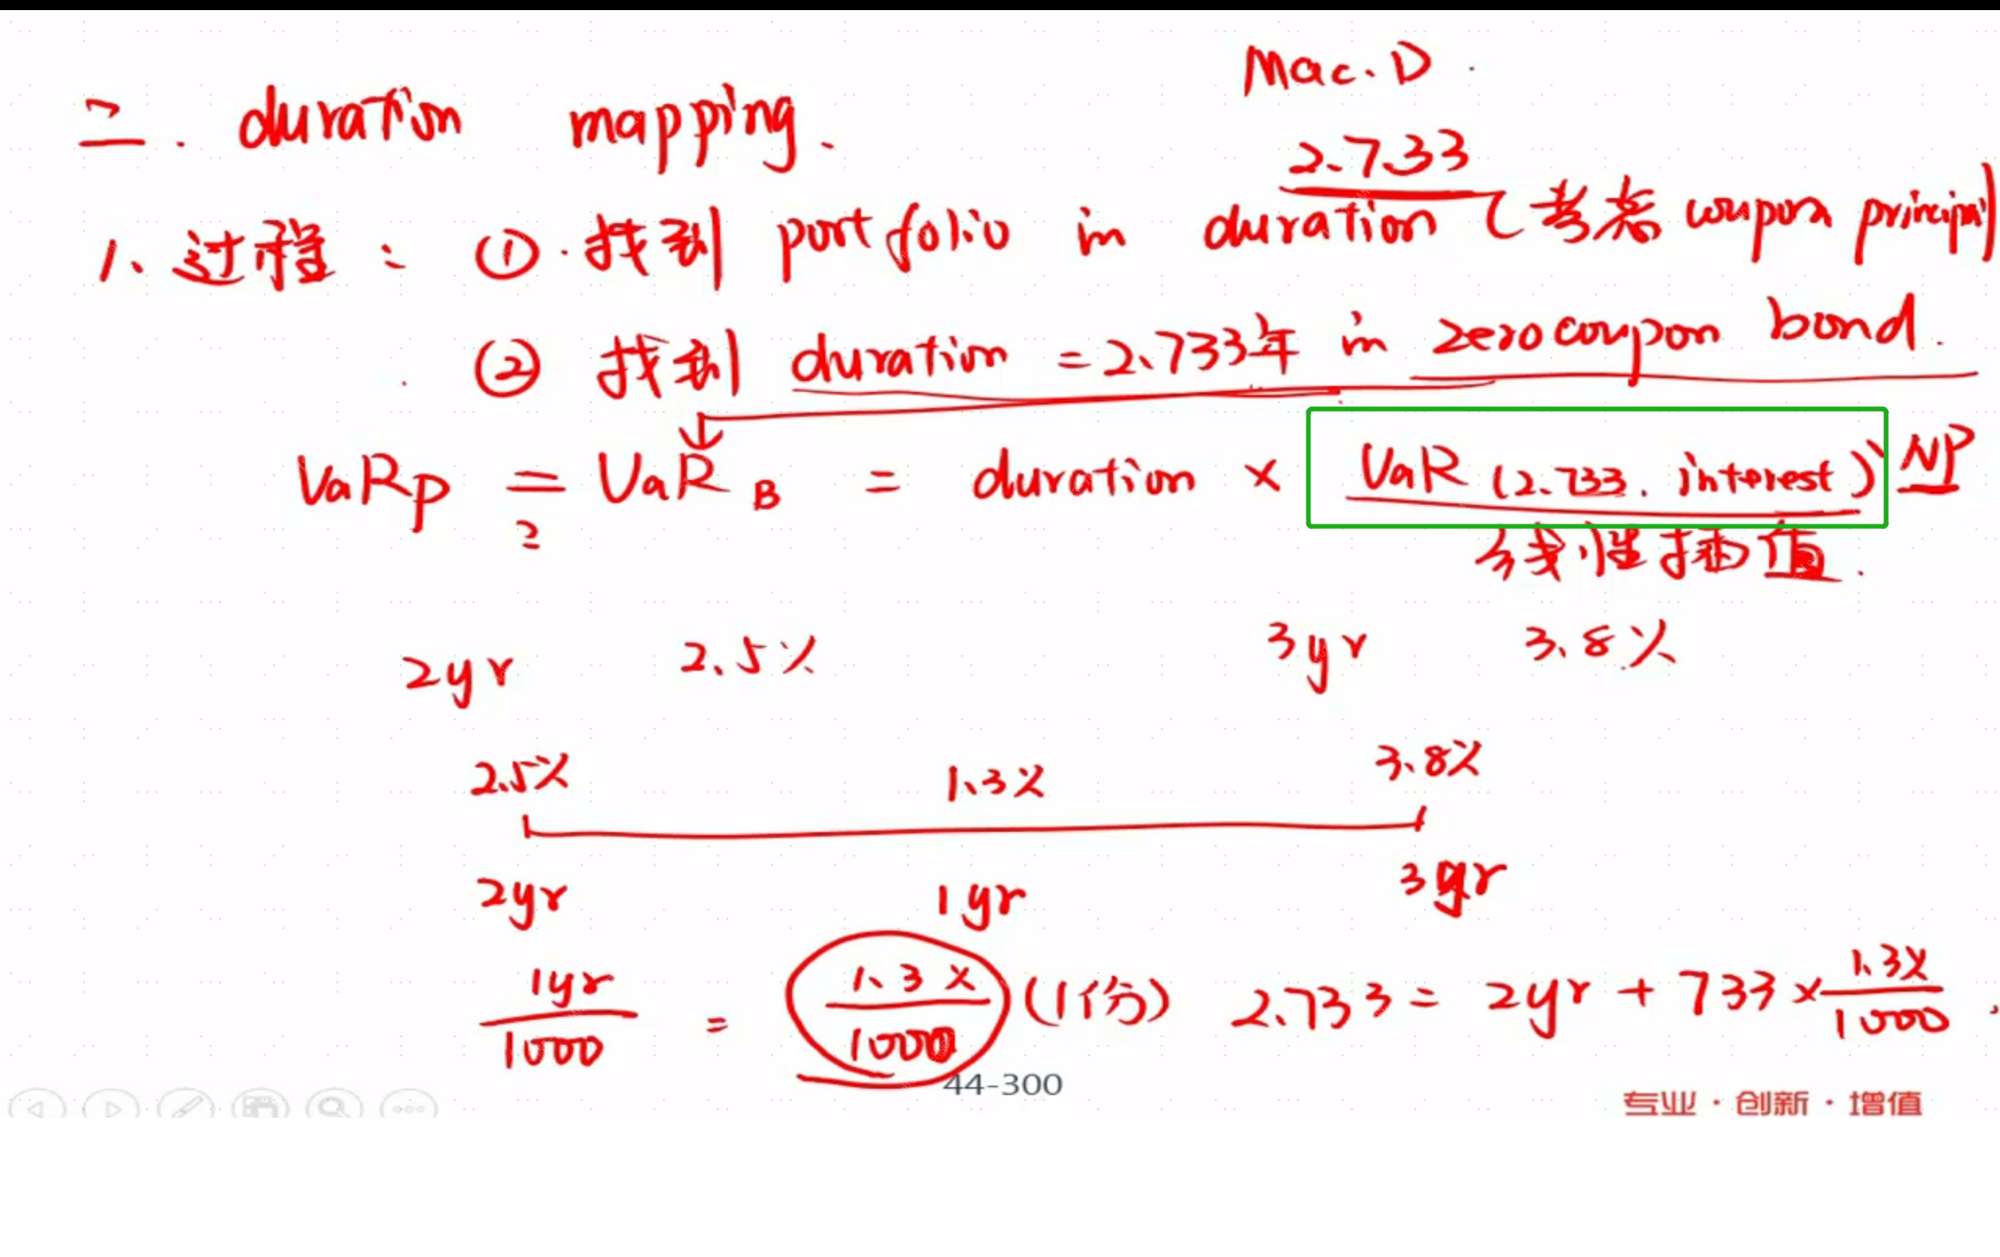 Mac. D
二. duration mapping.
2.733
1、过程：① 找到 portfolio in duration (考虑 coupon principal)
② 找到 duration = 2.733年 in zero coupon bond.
VaRp = VaR B = duration × VaR (2.733. interest) NP
2
线性插值.
2yr 2.5% 3yr 3.8%
2.5% 1.3% 3.8%
2yr 1yr 3yr
1yr/1000 = 1.3%/1000 (1份) 2.733 = 2yr + 733 × 1.3%/1000
44-300
专业·创新·增值